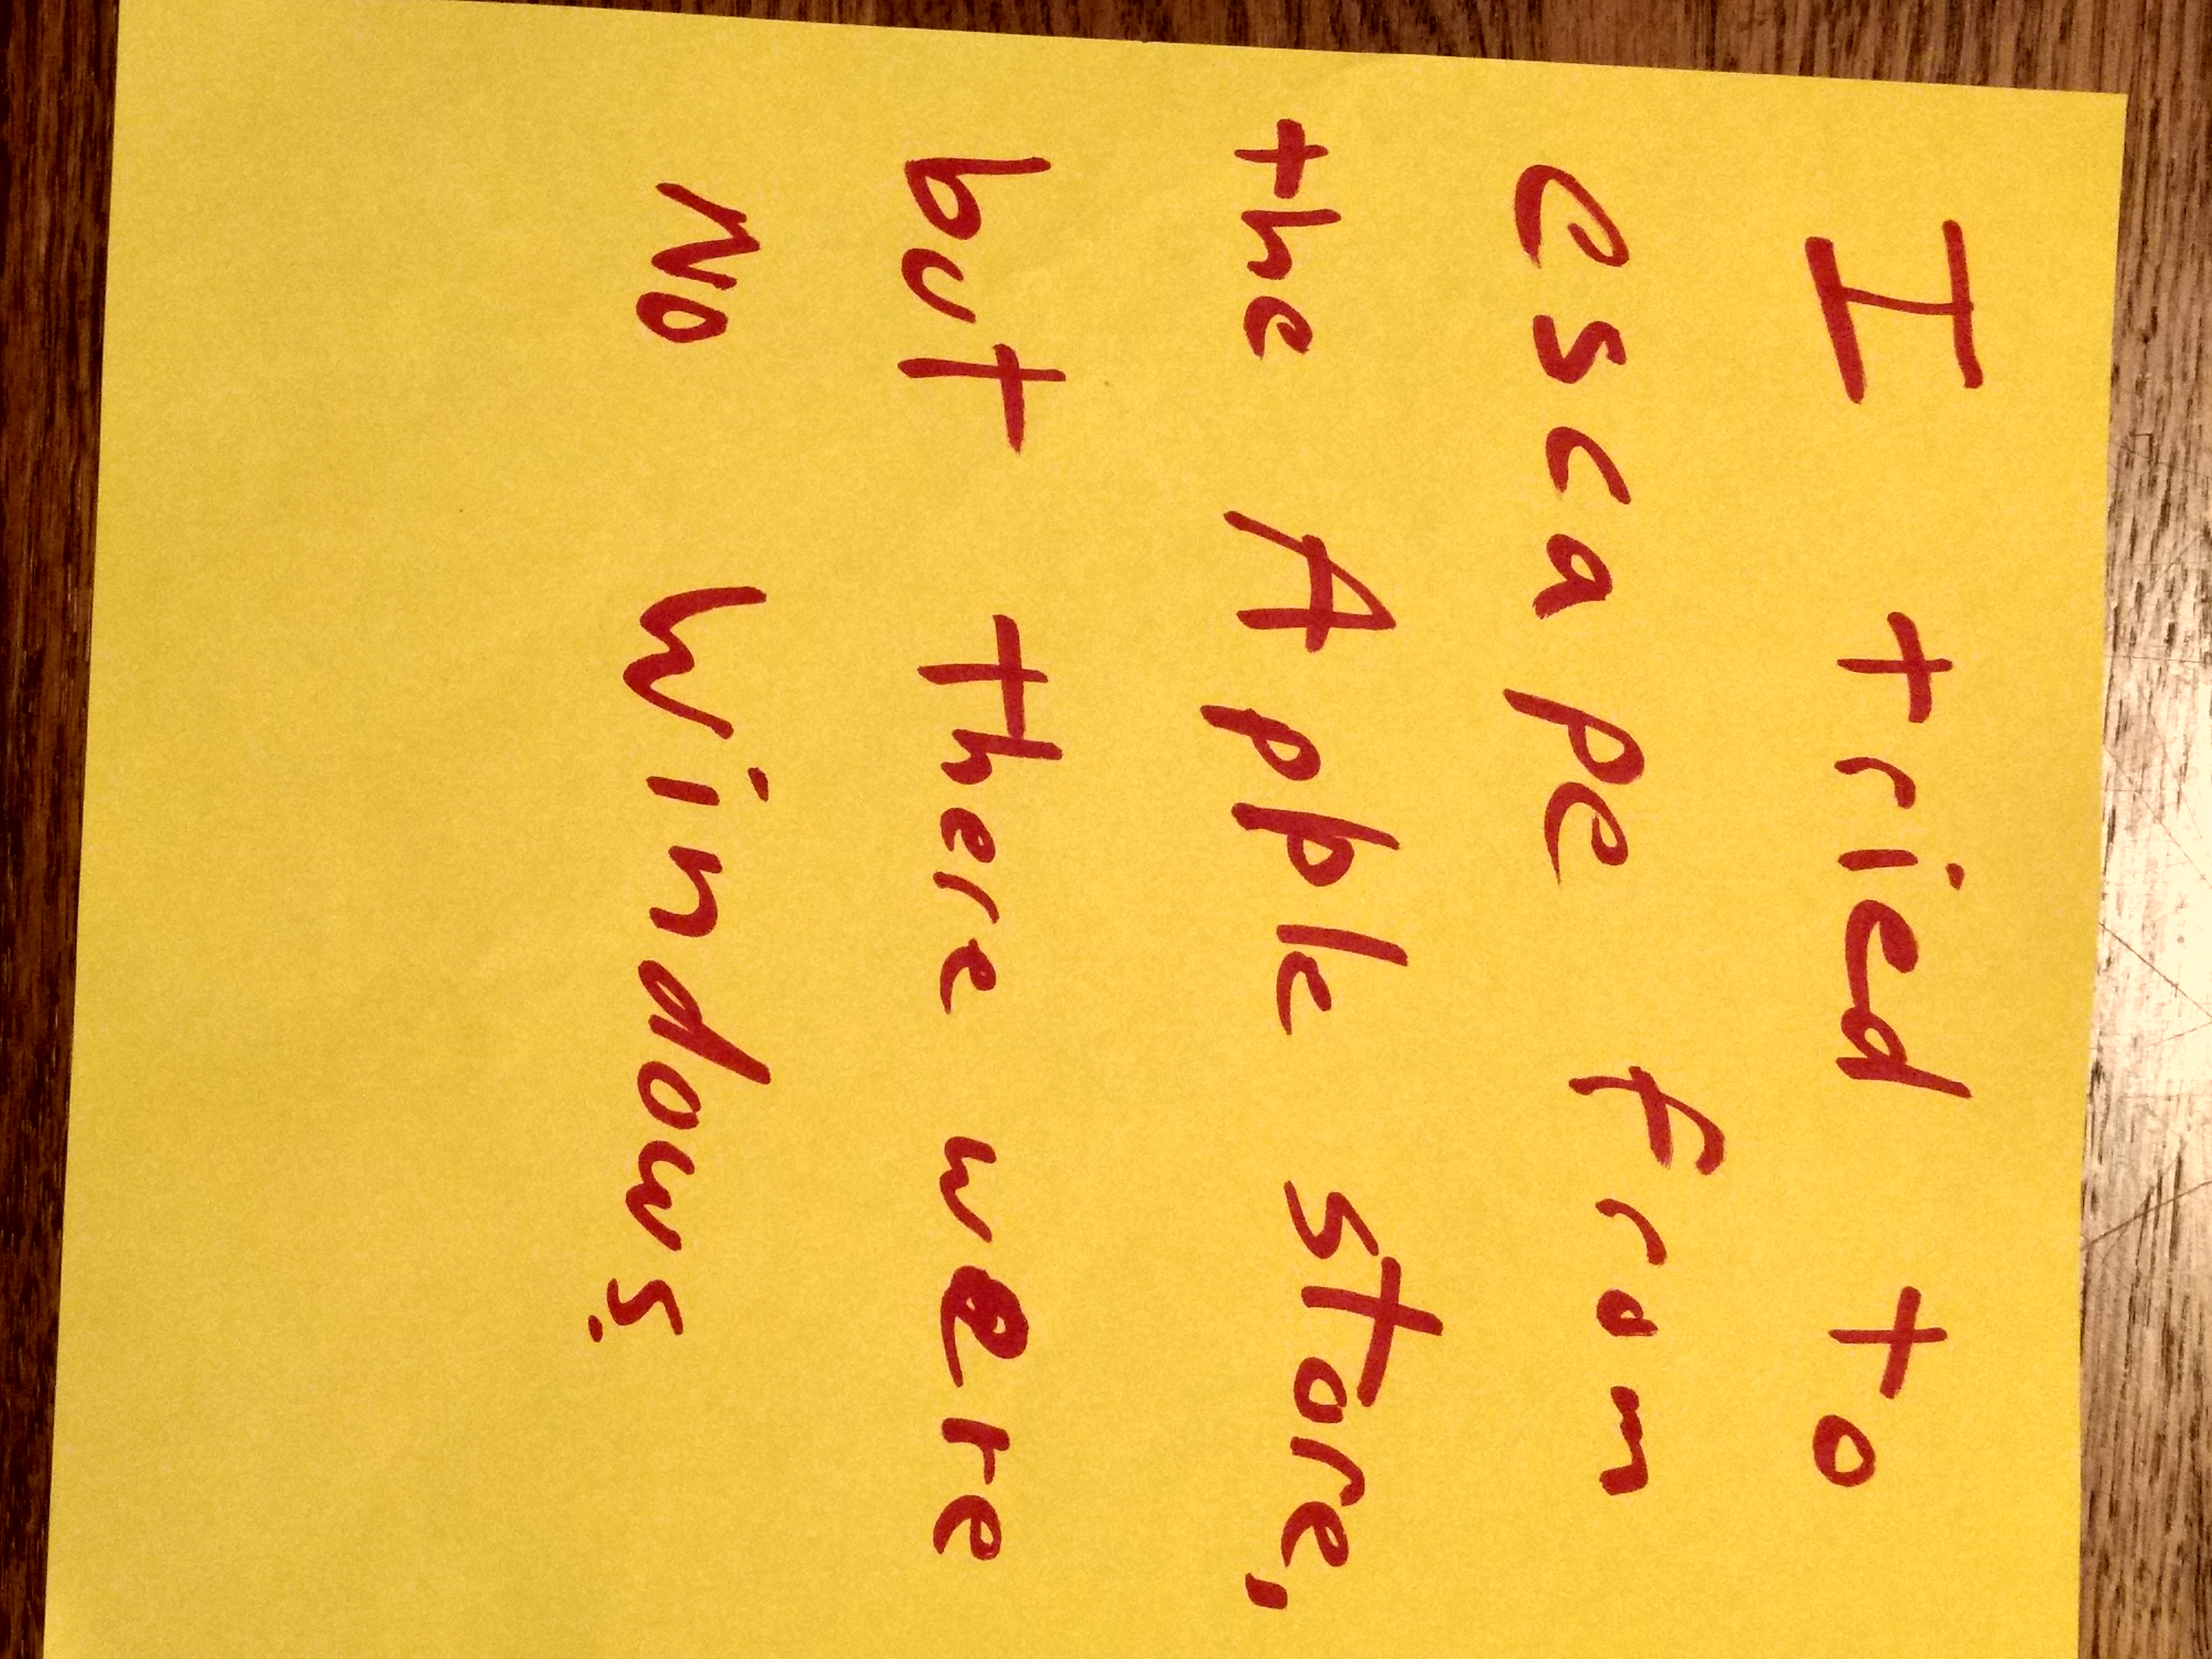 I tried to
escape from
the Apple Store,
but there were
No Windows.